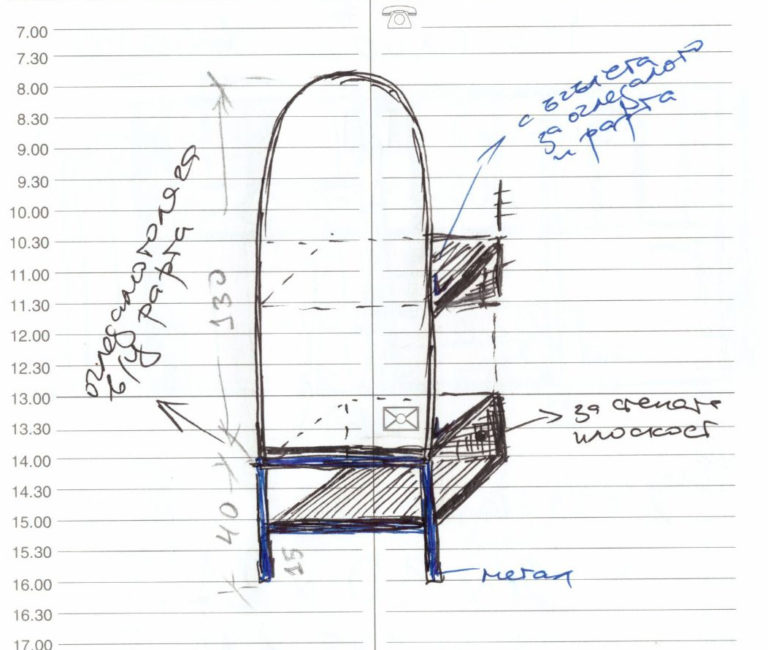 7.00
7.30
8.00
8.30
9.00
9.30
10.00
10.30
11.00
11.30
12.00
12.30
13.00
13.30
14.00
14.30
15.00
15.30
16.00
16.30
17.00
огледалото ляга
в/у рафта
130
40
15
за огледалото
и рафта
за стената
плоскост
метал